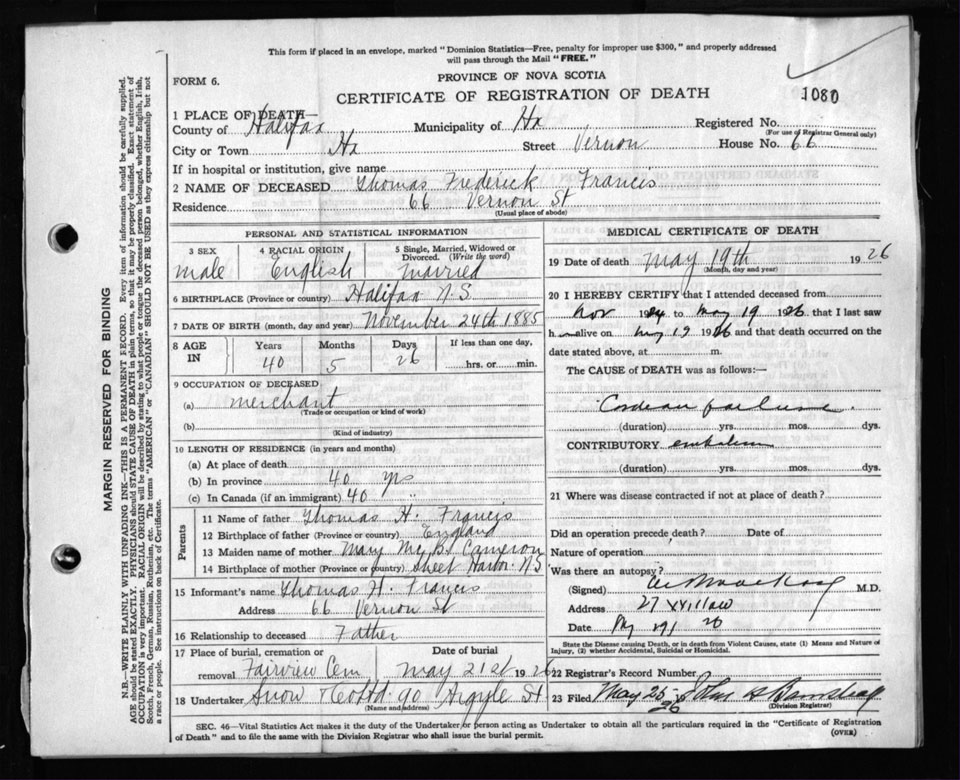 This form if placed in an envelope, marked "Dominion Statistics—Free, penalty for improper use $300," and properly addressed
will pass through the Mail "FREE."
FORM 6.
PROVINCE OF NOVA SCOTIA
CERTIFICATE OF REGISTRATION OF DEATH
1080
1 PLACE OF DEATH—
County of Halifax Municipality of Hx Registered No.
(For use of Registrar General only)
City or Town Hx Street Vernon House No. 66
If in hospital or institution, give name
2 NAME OF DECEASED Thomas Frederick Francis
Residence 66 Vernon St
(Usual place of abode)
PERSONAL AND STATISTICAL INFORMATION
3 SEX 4 RACIAL ORIGIN 5 Single, Married, Widowed or Divorced. (Write the word)
male English married
6 BIRTHPLACE (Province or country) Halifax N.S
7 DATE OF BIRTH (month, day and year) November 24th 1885
8 AGE IN Years Months Days If less than one day,
40 5 26 hrs. or min.
9 OCCUPATION OF DECEASED
(a) merchant
(Trade or occupation or kind of work)
(b)
(Kind of industry)
10 LENGTH OF RESIDENCE (in years and months)
(a) At place of death
(b) In province 40 yrs
(c) In Canada (if an immigrant) 40 "
Parents
11 Name of father Thomas H. Francis
12 Birthplace of father (Province or country) England
13 Maiden name of mother Mary Cameron
14 Birthplace of mother (Province or country) Sheet Harbor N.S
15 Informant's name Thomas H. Francis
Address 66 Vernon St
16 Relationship to deceased Father
17 Place of burial, cremation or removal Date of burial
Fairview Cem May 21st 1926
18 Undertaker Snow & Co Ltd 90 Argyle St
(Name and address)
MEDICAL CERTIFICATE OF DEATH
19 Date of death May 19th 1926
(Month, day and year)
20 I HEREBY CERTIFY that I attended deceased from
Nov 1924 to May 19 1926 that I last saw
h alive on May 19 1926 and that death occurred on the
date stated above, at m.
The CAUSE of DEATH was as follows:—
failure
(duration) yrs. mos. dys.
CONTRIBUTORY embolism
(duration) yrs. mos. dys.
21 Where was disease contracted if not at place of death?
Did an operation precede death? Date of
Nature of operation
Was there an autopsy?
(Signed) M.D.
Address 27 Willow
Date
State the Disease causing Death, or in death from Violent Causes, state (1) Means and Nature of
Injury, (2) whether Accidental, Suicidal or Homicidal.
22 Registrar's Record Number
23 Filed May 25 26 John
(Division Registrar)
SEC. 46—Vital Statistics Act makes it the duty of the Undertaker or person acting as Undertaker to obtain all the particulars required in the "Certificate of Registration
of Death" and to file the same with the Division Registrar who shall issue the burial permit.
(OVER)
MARGIN RESERVED FOR BINDING
N.B.—WRITE PLAINLY WITH UNFADING INK—THIS IS A PERMANENT RECORD. Every item of information should be carefully supplied.
AGE should be stated EXACTLY. PHYSICIANS should STATE CAUSE OF DEATH in plain terms, so that it may be properly classified. Exact statement of
OCCUPATION is very important. RACIAL ORIGIN will be described by stating to what people or tongue the deceased person belonged, whether English, Irish,
Scotch, French, German, Russian, Ruthenian, etc. The terms "AMERICAN" or "CANADIAN" SHOULD NOT BE USED as they express citizenship but not
a race or people. See instructions on back of Certificate.